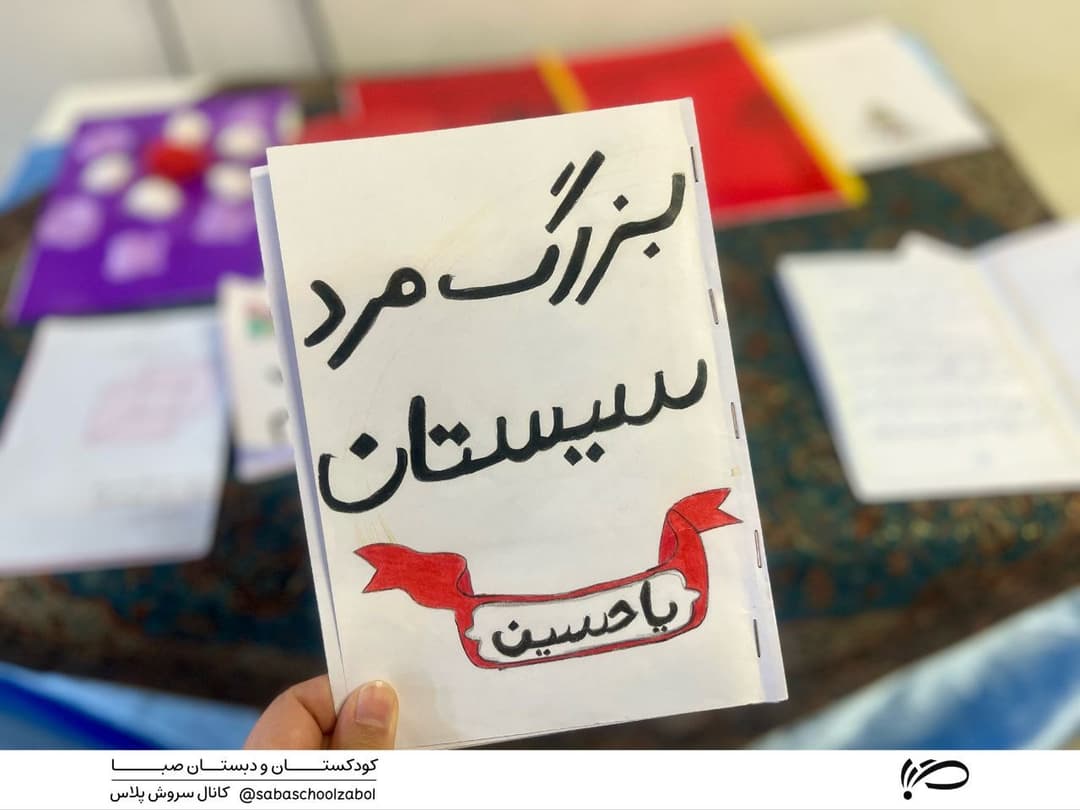 بزرگ مرد
سیستان
یا حسین
کودکستان و دبستان صبا
کانال سروش پلاس @sabaschoolzabol
صبا